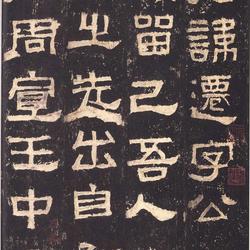 諱遷字公
留己吾人
之先出自
周宣王中